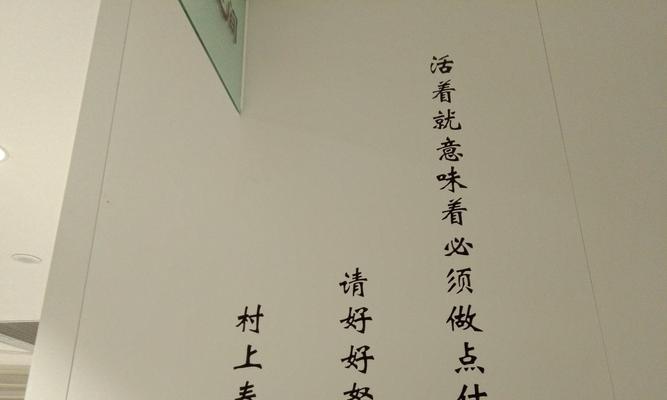 活着就意味着必须做点什
请好好努
村上春